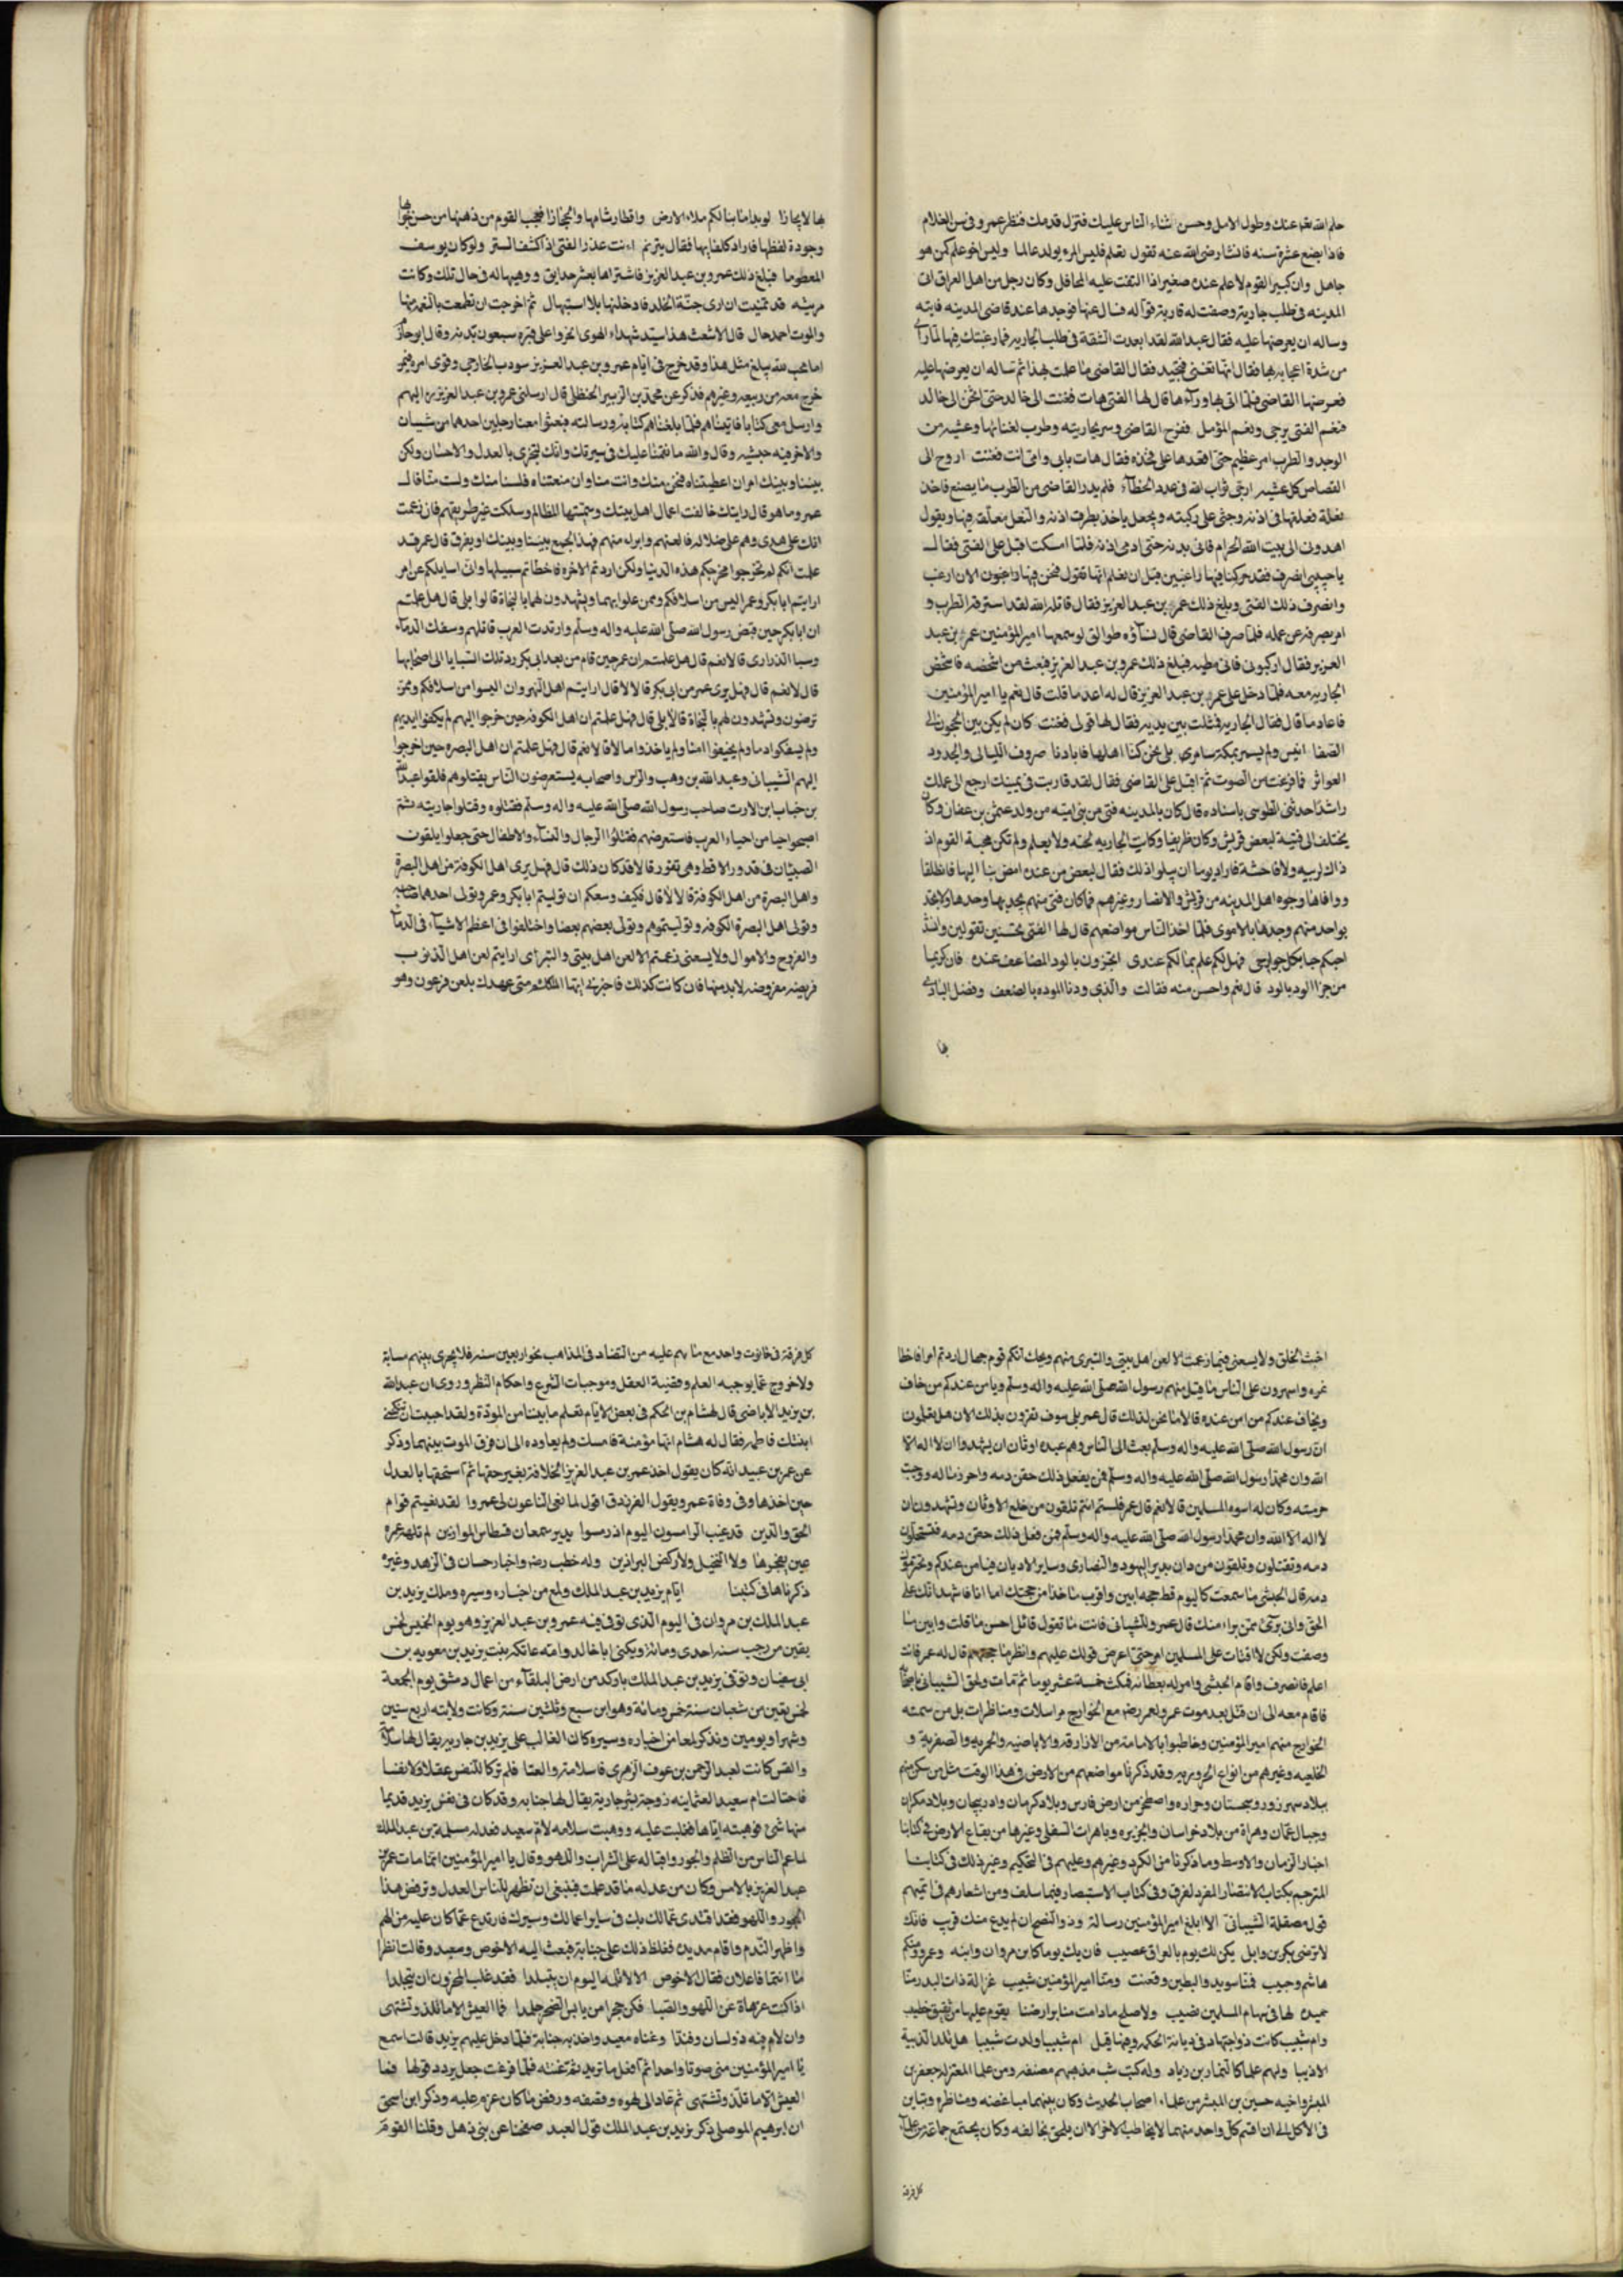 حلم الله عنك وطول الامل وحسن ثناء الناس عليك فتزل قدمك فنظر عمر وفى سن الغلام
فاذا بضع عشرة سنه فانشا رضى الله عنه يقول تعلم فليس المرء يولد عالما وليس اخو علم كمن هو
جاهل وان كبير القوم لا علم عنده صغير اذا التفت عليه المحافل وكان رجل من اهل العراق اتى
المدينه فى طلب جارية وصفت له قارية قواله فسال عنها فوجدها عند قاضى المدينه فاتاه
وساله ان يعرضها عليه فقال عبد الله لقد ابعدت الشقة فى طلب الجاريه فما رغبتك فيها لما راى
من شدة اعجابه بها فقال انها تغنى فتجيد فقال القاضى ما علمت بهذا ثم ساله ان يعرضها عليه
فعرضها القاضى فلما اتى بها وراها قال لها الفتى هات فغنت الى خالد حتى انخن الى خالد
فنعم الفتى يرجى ونعم المؤمل ففرح القاضى وسر بجاريته وطرب لغنائها وغشيه من
الوجد والطرب امر عظيم حتى اقعدها على فخذه فقال هات بابى وامى انت فغنت اروح الى
القصاص كل عشيه ارجى ثواب الله فى عدد الخطاء فلم يدر القاضى من الطرب ما يصنع فاخذ
نعله فعلقها فى اذنه وجثى على ركبته وجعل ياخذ بطرف اذنه والنعل معلق فيها ويقول
اهدونى الى بيت الله الحرام فانى بدنه حتى ادمى اذنه فلما امسكت اقبل على الفتى فقال
يا حبيبى انصرف فقد كنا فيها راغبين قبل ان نعلم انها تقول فنحن فيها راغبون الان ارغب
وانصرف ذلك الفتى وبلغ ذلك عمر بن عبد العزيز فقال قاتله الله لقد استرقه الطرب و
امر بصرفه عن عمله فلما صرف القاضى قال نساؤه طوالق لو سمعها امير المؤمنين عمر بن عبد
العزيز فقال اركبونى فانى مطيه فبلغ ذلك عمرو بن عبد العزيز فبعث من اشخصه فاشخص
الجاريه معه فلما دخل على عمر بن عبد العزيز قال له اعد ما قلت قال نعم يا امير المؤمنين
فاعاد ما قال فقال الجاريه فمثلت بين يديه فقال لها قولى فغنت كان لم يكن بين الحجون الى
الصفا انيس ولم يسمر بمكة سامر بلى نحن كنا اهلها فابادنا صروف الليالى والجدود
العواثر فما فرغت من الصوت ثم اقبل على القاضى فقال لقد قاربت فى يمينك ارجع الى عملك
راشدا حدثنى الطوسى باسناده قال كان بالمدينه فتى من بنى اميه من ولد عثمن بن عفان وكان
يختلف الى قينة لبعض قريش وكان ظريفا وكانت الجاريه تحبه ولا يعلم ولم تكن محبة القوم اذ
ذاك لريبه ولا فاحشة فاراد يوما ان يبلو ذلك فقال لبعض من عنده امض بنا اليها فانطلقا
ووافاها وجوه اهل المدينه من قريش والانصار وغيرهم فما كان فتى منهم يجد بها وجدها ولا تجد
بواحد منهم وجدها بالاموى فلما اخذ الناس مواضعهم قال لها الفتى تحسنين تقولين وانشد
احبكم حبا بكل جوارحى فهل لكم علم بما لكم عندى اتجزون بالود المضاعف عنده فان كريما
من جزا الود بالود قال نعم واحسن منه فقالت والذى ودنا الموده بالضعف وفضل البادى
ها لا يجازا لو بدا ما بنا لكم ملاء الارض واقطار شامها والحجازا فعجب القوم من ذهنها من حسن جوابها
وجودة لفظها فازداد كلفا بها فقال يترنم انت عذر الفتى اذا كشف الستر ولو كان يوسف
المعصوما فبلغ ذلك عمرو بن عبد العزيز فاشتراها بعشر حدايق ووهبها له فى حال تلك وكانت
قد تمنيت ان ارى جنة الخلد فادخلتها بلا استيهال ثم اخرجت ان تطعمت بالنعمه منها
والموت احمد حال قال الاشعث هذا سيد شهداء الهوى انحروا على قبره سبعون بدنه وقال ابو حازم
اما محب لله يبلغ مثل هذا وقد خرج فى ايام عمرو بن عبد العزيز سودب الخارجى وقوى امره فيمن
خرج معه من ربيعه وغيرهم فذكر عن محمد بن الزبير الحنظلى قال ارسلنى عمرو بن عبد العزيز اليهم
وارسل معى كتابا فاتيناهم فلما بلغناهم كتابه ورسالته فبعثوا معنا رجلين احدهما من شيبان
والاخر فيه حبشيه وقال والله ما نقمنا عليك فى سيرتك وانك لتحرى بالعدل والاحسان ولكن
بيننا وبينك امر ان اعطيتناه فنحن منك وانت منا وان منعتناه فلسنا منك ولست منا قال
عمر وما هو قال رايتك خالفت اعمال اهل بيتك وسميتها المظالم وسلكت غير طريقهم فان زعمت
انك على هدى وهم على ضلاله فالعنهم وابرا منهم فهذا الجمع بيننا وبينك او يفرق قال عمر قد
علمت انكم لم تخرجوا مخرجكم هذه الدنيا ولكن اردتم الاخره فاخطاتم سبيلها وانى اسايلكم عن امر
ارايتم ابا بكر وعمر اليس من اسلافكم وممن تولوا بهما وتشهدون لهما بالنجاة قالوا بلى قال هل علمتم
ان ابا بكر حين قبض رسول الله صلى الله عليه واله وسلم وارتدت العرب قاتلهم وسفك الدماء
وسبا الذرارى قالا نعم قال هل علمتم ان عمر حين قام من بعد ابى بكر رد تلك السبايا الى اصحابها
قال لا نعم قال فهل برى عمر من ابى بكر قالا لا قال ارايتم اهل النهروان اليسوا من اسلافكم وممن
ترضون وتشهدون لهم بالنجاة قالا بلى قال فهل علمتم ان اهل الكوفه حين خرجوا اليهم لم يكفوا ايديهم
ولم يسفكوا دما ولم يخيفوا امنا ولم ياخذوا مالا قالا نعم قال فهل علمتم ان اهل البصره حين اخرجوا
اليهم الشيبانى وعبد الله بن وهب والراس واصحابه يستعرضون الناس يقتلوهم فلقوا عبد الله
بن خباب ابن الارت صاحب رسول الله صلى الله عليه واله وسلم فقتلوه وقتلوا جاريته ثم
اصبحوا حيا من احياء العرب فاستعرضهم فقتلوا الرجال والنساء والاطفال حتى جعلوا يلقون
الصبيان فى قدور الاقط وهى تفور قالا قد كان ذلك قال فهل برى اهل الكوفة من اهل البصرة
واهل البصرة من اهل الكوفة قالا لا قال فكيف وسعكم ان توليتم ابا بكر وعمر وتولى احدهما صاحبه
وتولى اهل البصرة الكوفه وتوليتموهم وتولى بعضهم بعضا واختلفوا فى اعظم الاشياء فى الدماء
والفروج والاموال ولا يسعنى زعمتم الا لعن اهل بيتى والتبراى ارايتم لعن اهل الذنوب
فريضه مفروضه لا بد منها فان كانت كذلك فاخبرنى ايها المتكلم متى عهدك بلعن فرعون وهو
اخبث الخلق ولا يسعنى فيما زعمت الا لعن اهل بيتى والتبرى منهم ويحك انكم قوم جهال اردتم امرا فاخطا
تموه على الناس ما قبل منهم رسول الله صلى الله عليه واله وسلم ويامن عندكم من خاف
ويخاف عندكم من امن عنده قالا ما نحن لذلك قال عمر بلى سوف تقرون بذلك الان هل تعلمون
ان رسول الله صلى الله عليه واله وسلم بعث الى الناس وهم عبدة اوثان ان يشهدوا ان لا اله الا
الله وان محمدا رسول الله صلى الله عليه واله وسلم فمن يفعل ذلك حقن دمه واحرز ماله ووجبت
حرمته وكان له اسوه المسلمين قالا نعم قال عمر فلستم انتم تلقون من خلع الاوثان وتشهدون ان
لا اله الا الله وان محمدا رسول الله صلى الله عليه واله وسلم فمن فعل ذلك حقن دمه فتستحلون
دمه وتقتلون وتلقون من دان بدين اليهود والنصارى وساير الاديان فيامن عندكم وتحرمون
دمه قال الحبشى ما سمعت كاليوم قط حجه ابين واقرب ماخذا من حجتك اما انا فاشهد انك على
الحق وانى برى ممن براء منك قال عمر والشيبانى فانت ما تقول قال ما احسن ما قلت وابين ما
وصفت ولكن لا افتات على المسلمين امر حتى اعرض قولك عليهم وانظر ما حجتهم قال له عمر فانت
اعلم فانصرف واقام الحبشى وامر له بعطائه فمكث خمسة عشر يوما ثم مات ولحق الشيبانى باصحابه
فاقام معه الى ان قتل بعد موت عمر ولعمر رضه مع الخوارج مراسلات ومناظرات بل من سمته
الخوارج منهم امير المؤمنين وخاطبوا بالامامة من الازارقه والاباضيه والحريه والصفرية و
الخلفيه وغيرهم من انواع الحروريه وقد ذكرنا مواضعهم من الارض فى هذا الوقت مثل من سكن منهم
ببلاد سهرزور وسجستان وحراره واصطخر من ارض فارس وبلاد كرمان وادربيجان وبلاد مكران
وجبال عمان وهراة من بلاد خراسان والجزيره وباهرات السفلى وغيرها من بقاع الارض فى كتابنا
اخبار الزمان والاوسط وما ذكرنا من الكرد وغيرهم وعليهم فى التحكيم وغير ذلك فى كتابنا
المترجم بكتاب الانتصار المفرد لفرق وفى كتاب الاستبصار فيما سلف ومن اشعارهم فى تميم
قول مصقلة الشيبانى الا ابلغ امير المؤمنين رسالة وذو النصح ان لم يدع منك قريب فانك
لا ترضى بكر بن وايل يكن لك يوم بالعراق عصيب فان يك يوما كابن مروان وابنه وعمرو ومنكم
هاشم وحبيب فمنا سويد والبطين وقعنب ومنا امير المؤمنين شبيب غزالة ذات البدر منا
حميده لها فى سهام المسلمين نصيب ولا صلح ما دامت منابر ارضنا يقوم عليها من ثقيف خطيب
وام شبيب كانت ذو اجتهاد فى ديانة الحكم وفيها قيل ام شبيب ولدت شبيبا هل تلد الذيبة
الا ذيبا ولهم علما كالثمار بن زياد وله كتب مذهبهم مصنفه ومن علما المعتزله جعفر بن
المبشر واخيه حسين بن المبشر من علماء اصحاب الحديث وكان بينهما مباغضه ومناظره وتباين
فى الاكل الى ان اقسم كل واحد منهما لا يخاطب الاخر الا ان يلحق بخالقه وكان يجتمع جماعة من علماء
كل فرقه
كل فرقة فى حانوت واحد مع ما بهم عليه من التضاد فى المذاهب نحو اربعين سنه فلا يجرى بينهم مسابة
ولا خروج عما يوجبه العلم وقضية العقل وموجبات الشرع واحكام النظر وروى ان عبد الله
بن يزيد الاباضى قال لهشام بن الحكم فى بعض الايام تعلم ما بيننا من المودة ولقد احببت ان تنكحنى
ابنتك فاطمه فقال له هشام انها مؤمنة فامسك ولم يعاوده الى ان فرق الموت بينهما وذكر
عن عمر بن عبيد انه كان يقول اخذ عمر بن عبد العزيز الخلافة بغير حقها ثم استحقها بالعدل
حين اخذها وفى وفاة عمر ويقول الفرزدق اقول لما نعى الناعون لى عمروا لقد نعيتم قوام
الحق والدين قد غيب الرامسون اليوم اذ رمسوا بدير سمعان قسطاس الموازين لم تلهه عمره
عين يفجرها ولا النخيل ولا ركض البراذين وله خطب رضه واخبار حسان فى الزهد وغيره
ذكرناها فى كتبنا ايام يزيد بن عبد الملك ولمع من اخباره وسيره وملك يزيد بن
عبد الملك بن مروان فى اليوم الذى توفى فيه عمرو بن عبد العزيز وهو يوم الخميس لخمس
بقين من رجب سنه احدى ومائة ويكنى ابا خالد وامه عاتكه بنت يزيد بن معويه بن
ابى سفيان وتوفى يزيد بن عبد الملك باربد من ارض البلقاء من اعمال دمشق يوم الجمعة
لخمس بقين من شعبان سنة خمس ومائة وهو ابن سبع وثلثين سنة وكانت ولايته اربع سنين
وشهرا ويومين ونذكر لمعا من اخباره وسيره كان الغالب على يزيد بن جاريه يقال لها سلامة
والقس كانت لعبد الرحمن بن عوف الزهرى
فاحتالت ام سعيد العثمانيه زوجته بشر جارية يقال لها حبابه وقد كان فى نفس يزيد قديما
منها شئ فوهبته اياها فغلبت عليه ووهبت سلامه لام سعيد فعدله مسلمة بن عبد الملك
لما عم الناس من الظلم والجور واقباله على الشراب واللهو وقال يا امير المؤمنين انما مات عمر بن
عبد العزيز بالامس وكان من عدله ما قد علمت فينبغى ان تظهر للناس العدل وترفض هذا
الجور واللهو فقد اقتدى عمالك بك فى ساير اعمالك وسيرك فارتدع عما كان عليه من اللهو
واظهر الندم واقام مديده فغلظ ذلك على حبابة فبعث اليه الاحوص ومعبد وقالت انظرا
ما انتما فاعلان فقال الاحوص الا لا تلمه اليوم ان يتبلدا فقد غلب المحزون ان يتجلدا
اذا كنت عزهاة عن اللهو والصبا فكن حجرا من يابس الصخر جلمدا فما العيش الا ما تلذ وتشتهى
وان لام فيه ذو لسان وفندا وغناه معبد واخذ به حبابة فلما دخل عليهم يزيد قالت اسمع
يا امير المؤمنين منى صوتا واحدا ثم افعل ما تريد ثم غنته فلما فرغت جعل يردد قولها فما
العيش الا ما تلذ وتشتهى ثم عاد الى لهوه وقصفه ورفض ما كان عزم عليه وذكر ابن اسحق
ان ابرهيم الموصلى ذكر يزيد بن عبد الملك قول العبد صفحنا عن بنى ذهل وقلنا القوم